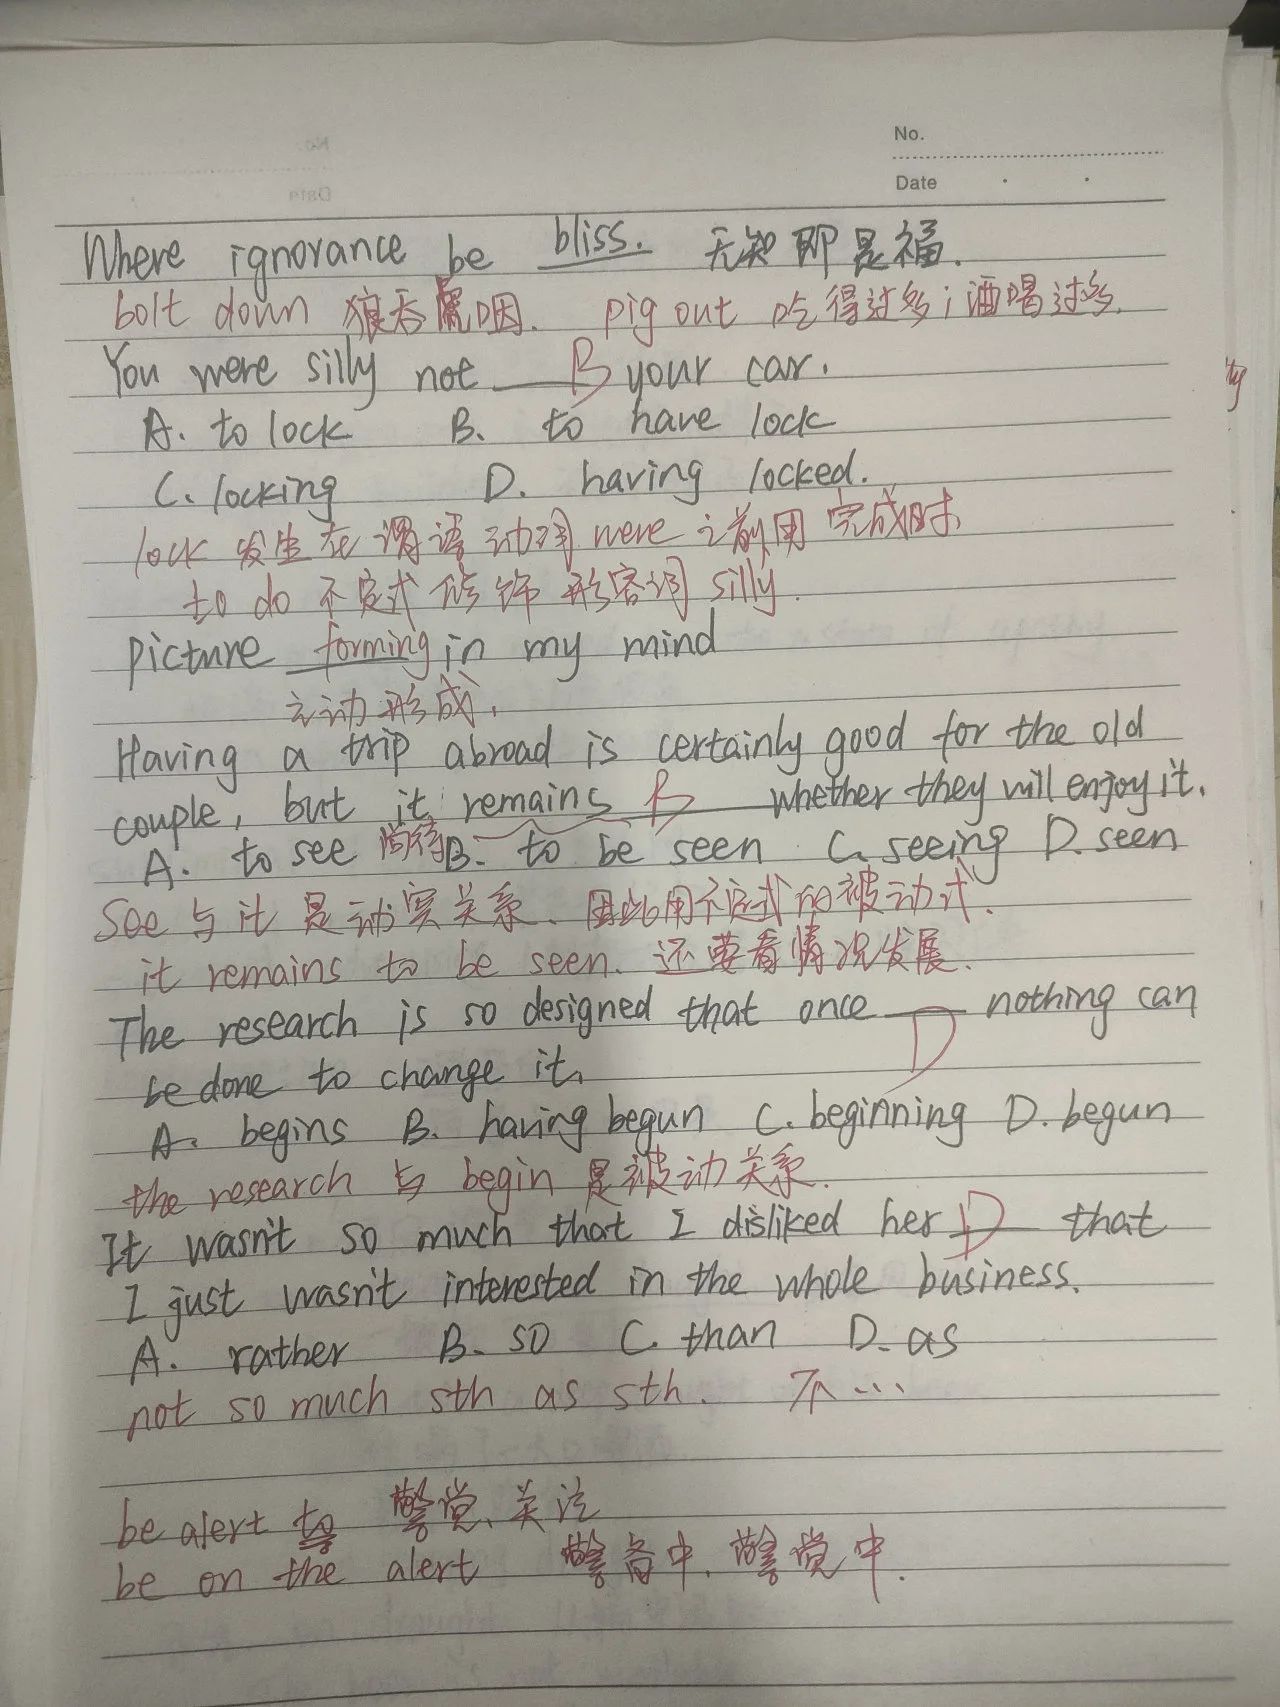 No.
Date
Where ignorance be bliss. 无知即是福.
bolt down 狼吞虎咽. pig out 吃得过多;酒喝过多.
You were silly not ____B your car.
A. to lock B. to have lock
C. locking D. having locked.
lock 发生在谓语动词 were 之前用完成时
to do 不定式修饰形容词 silly.
picture forming in my mind
主动形成.
Having a trip abroad is certainly good for the old
couple, but it remains B____ whether they will enjoy it.
A. to see 尚待 B. to be seen C. seeing D. seen
See 与 it 是动宾关系. 因此用不定式的被动式.
it remains to be seen. 还要看情况发展.
The research is so designed that once ____D nothing can
be done to change it.
A. begins B. having begun C. beginning D. begun
the research 与 begin 是被动关系.
It wasn't so much that I disliked her D____ that
I just wasn't interested in the whole business.
A. rather B. so C. than D. as
not so much sth as sth. 不…
be alert to 警觉、关注
be on the alert 警备中. 警觉中.